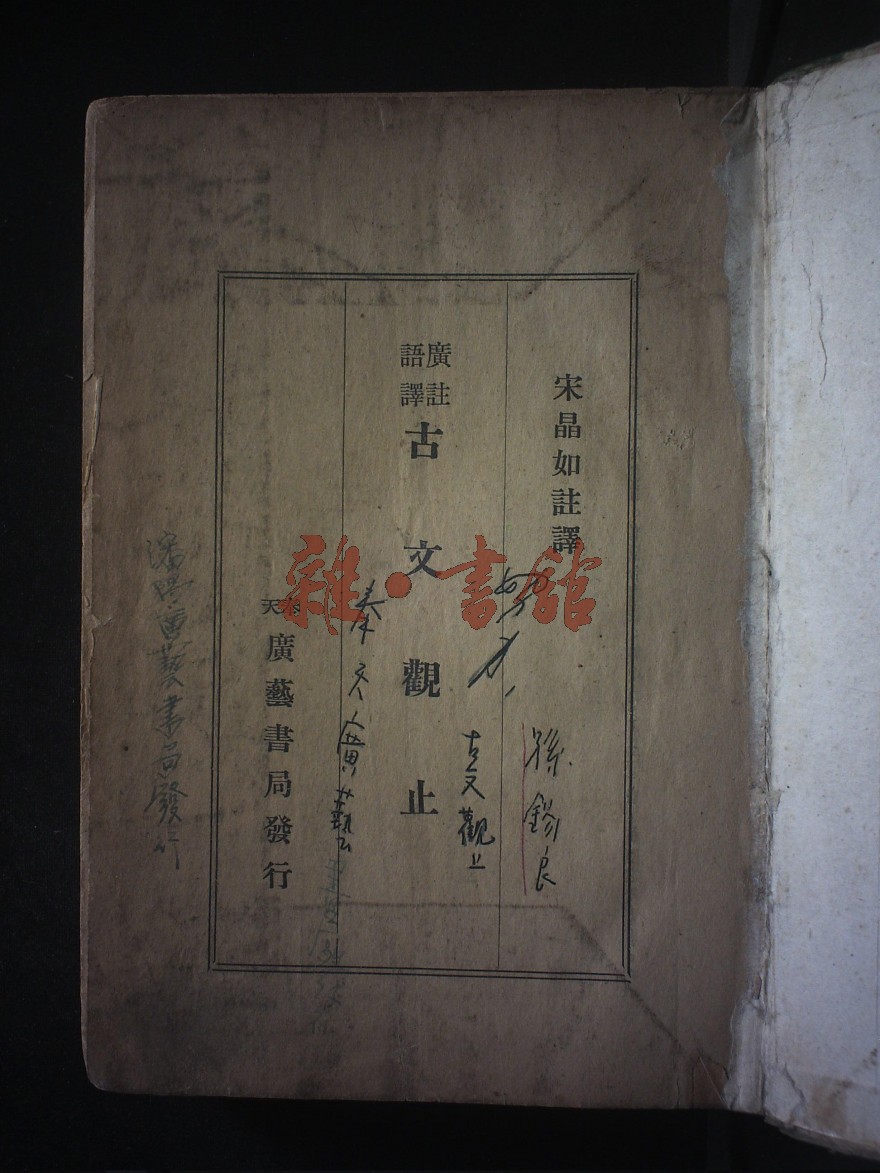 宋晶如註譯
廣註
語譯
古文觀止
奉天
廣藝書局發行
雜·書館
努力
孫錫良
古文觀止
奉天廣藝
瀋陽廣藝書局發行